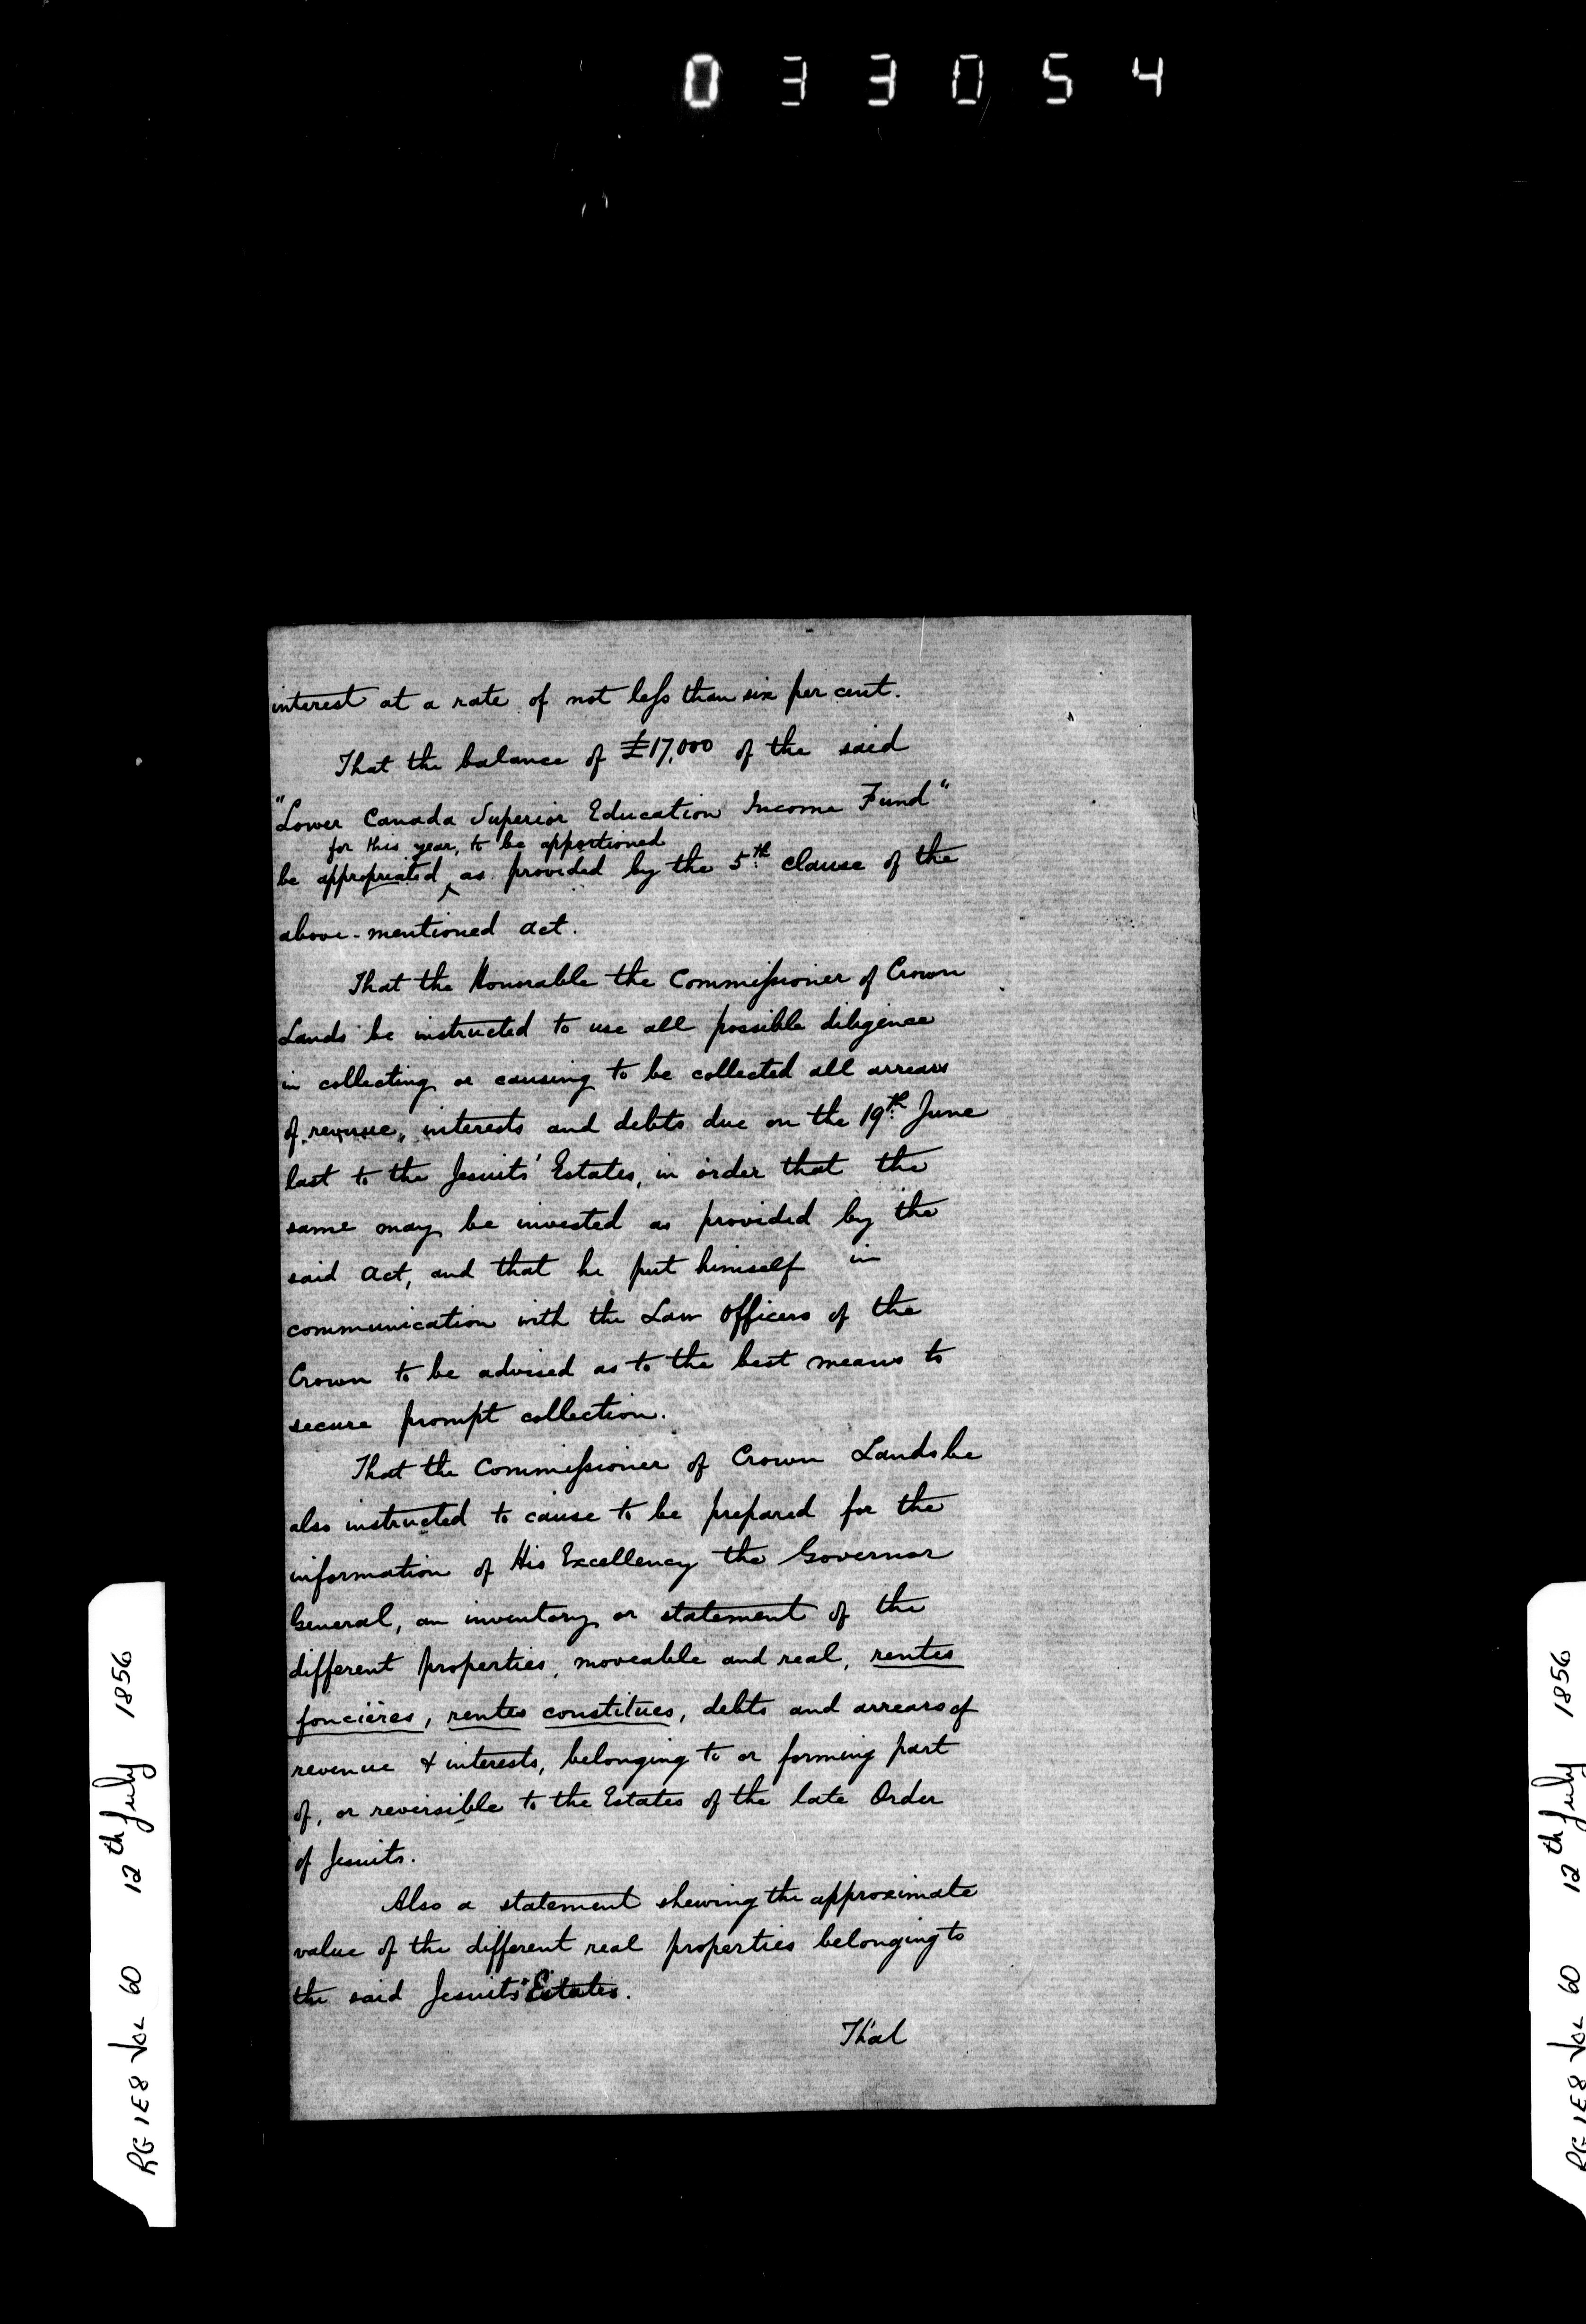 033054
interest at a rate of not less than six per cent.
That the balance of £17,000 of the said
"Lower Canada Superior Education Income Fund"
for this year, to be apportioned
be appropriated ^ as provided by the 5th clause of the
above-mentioned act.
That the Honorable the Commissioner of Crown
Lands be instructed to use all possible diligence
in collecting or causing to be collected all arrears
of revenue, interests and debts due on the 19th June
last to the Jesuits' Estates, in order that the
same may be invested as provided by the
said Act, and that he put himself in
communication with the Law Officers of the
Crown to be advised as to the best means to
secure prompt collection.
That the Commissioner of Crown Lands be
also instructed to cause to be prepared for the
information of His Excellency the Governor
General, an inventory or statement of the
different properties, moveable and real, rentes
foncières, rentes constitues, debts and arrears of
revenue & interests, belonging to or forming part
of, or reversible to the Estates of the late Order
of Jesuits.
Also a statement shewing the approximate
value of the different real properties belonging to
the said Jesuits' Estates.
That
RG 1E8 Vol 60 12th July 1856
RG 1E8 Vol 60 12th July 1856